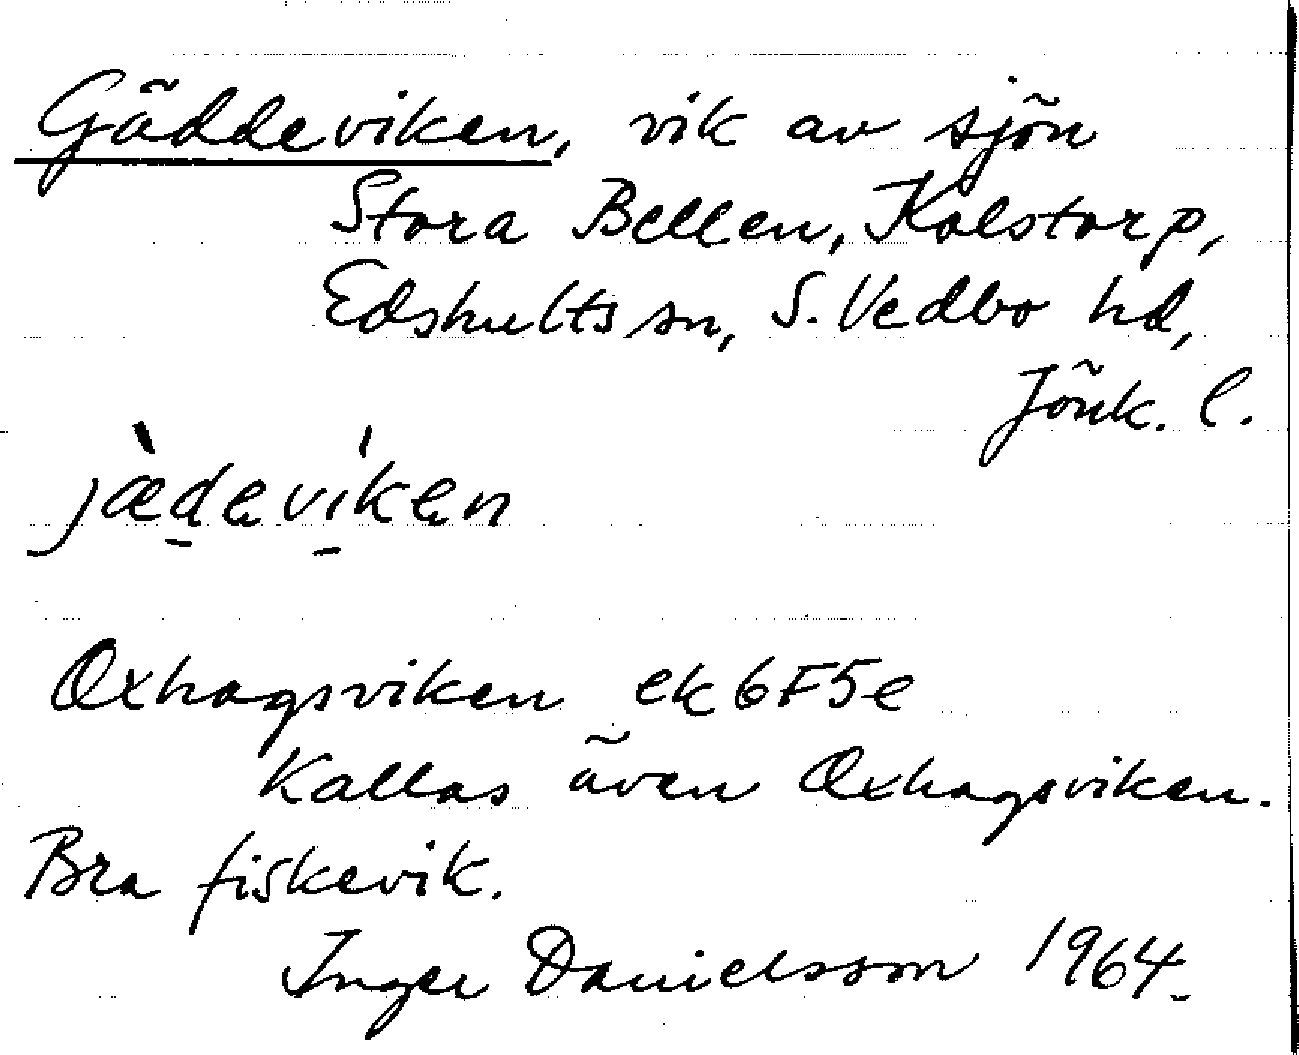 Gäddeviken, vik av sjön
Stora Bellen, Kolstorp,
Edshults sn, S. Vedbo hd,
Jönk. l.
jæ̀devíken
Oxhagsviken ek 6F5e
Kallas även Oxhagsviken.
Bra fiskevik.
Inger Danielsson 1964.